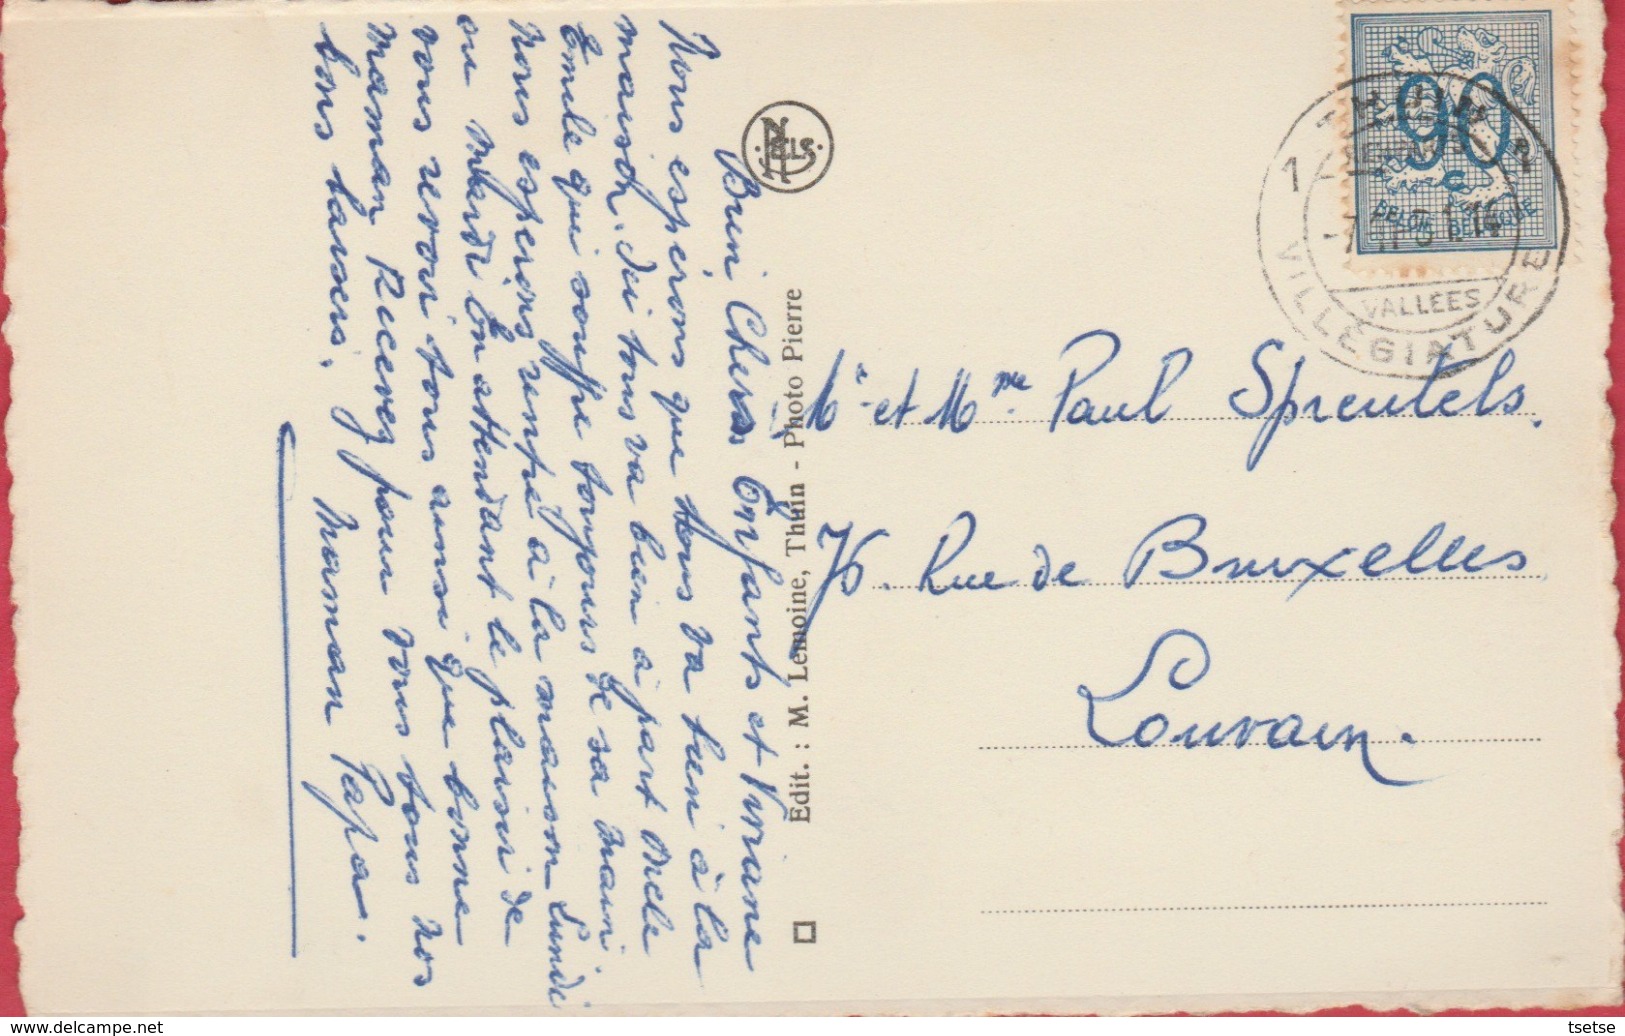 Bien Chers Enfants et Viviane
Nous espérons que tous va bien à la
maison. Ici tous va bien à part Melle
Emile qui souffre toujours de sa main
Nous espérons rentré à la maison Lundi
ou Mardi En attendant le plaisir de
vous revoir tous aussi que bonne
maman Recevez pour vous tous nos
bons baisers.
Maman Papa.
Edit. : M. Lemoine, Thuin - Photo Pierre
NELS
90
BELGIE BELGIQUE
1 THUIN 1
51.14
VALLEES
VILLEGIATURE
Mr et Mme Paul Spreutels.
76. Rue de Bruxelles
Louvain.
© delcampe.net
tsetse